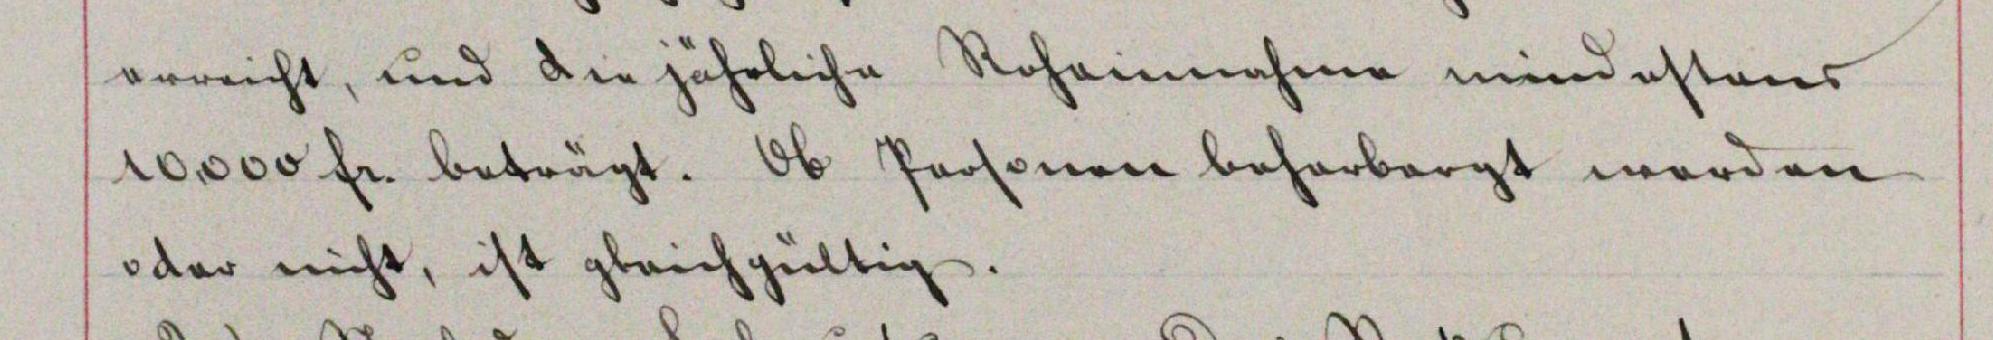 erreicht, und die jährliche Roheinnahme mindestens
10,000 fr. beträgt. Ob Personen beherbergt werden
oder nicht, ist gleichgültig.